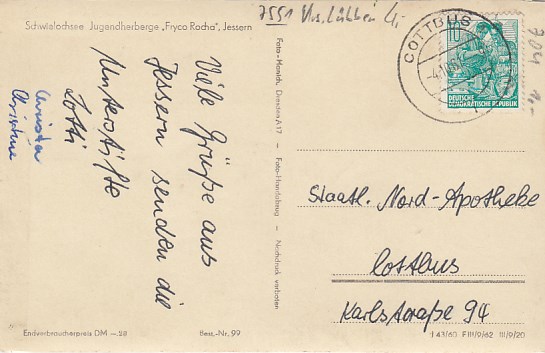 Schwielochsee Jugendherberge „Fryco Rocha", Jessern
7551 Krs. Lübben
704
COTTBUS
10
DEUTSCHE
DEMOKRATISCHE REPUBLIK
Viele Grüße aus
Jessern senden die
Unterstifte
Lotti
Christa
Christine
Foto-Handabzug – Nachdruck verboten
Staatl. Nord-Apotheke
Cottbus
Karlstraße 94
Endverbraucherpreis DM –.28
Best.-Nr. 99
II 43/60 F III/9/62 III/9/20